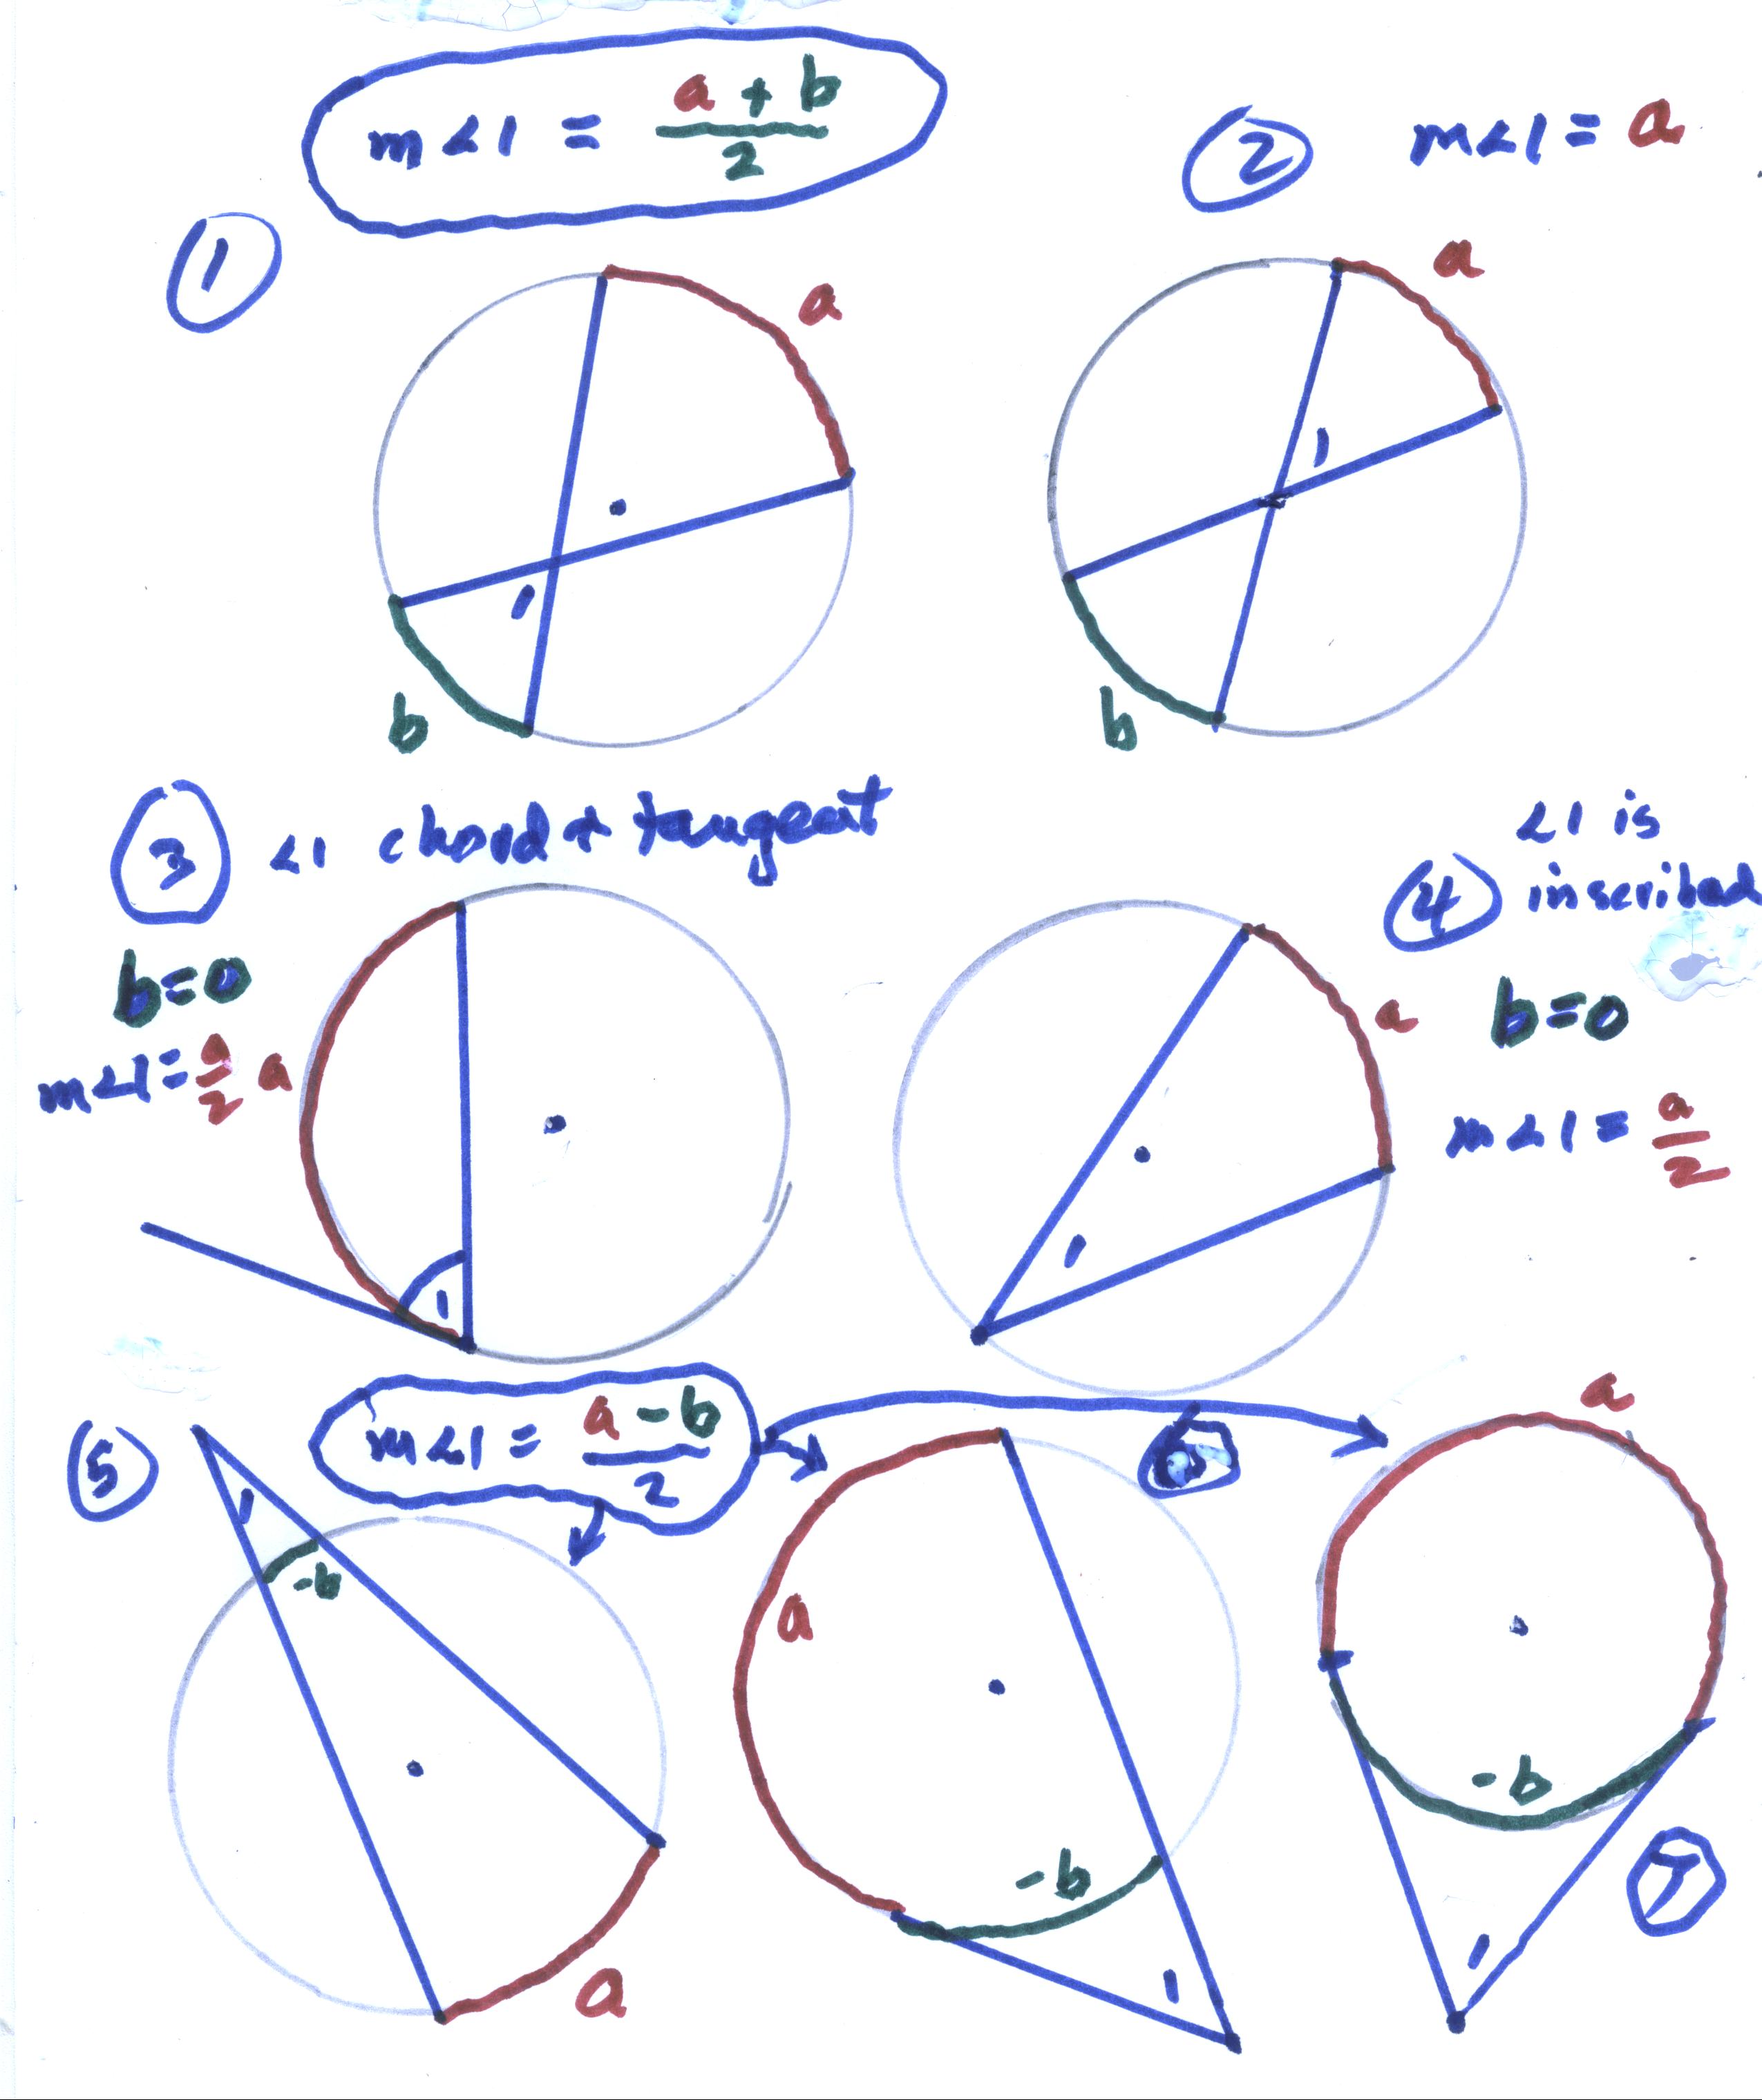 m∠1 = a + b / 2
② m∠1 = a
①
a
1
b
a
1
b
③ ∠1 chord + tangent
b=0
m∠1 = a/2
a
1
∠1 is
④ inscribed
b=0
m∠1 = a/2
a
1
⑤
m∠1 = a - b / 2
1
-b
a
a
-b
1
a
-b
⑦
1